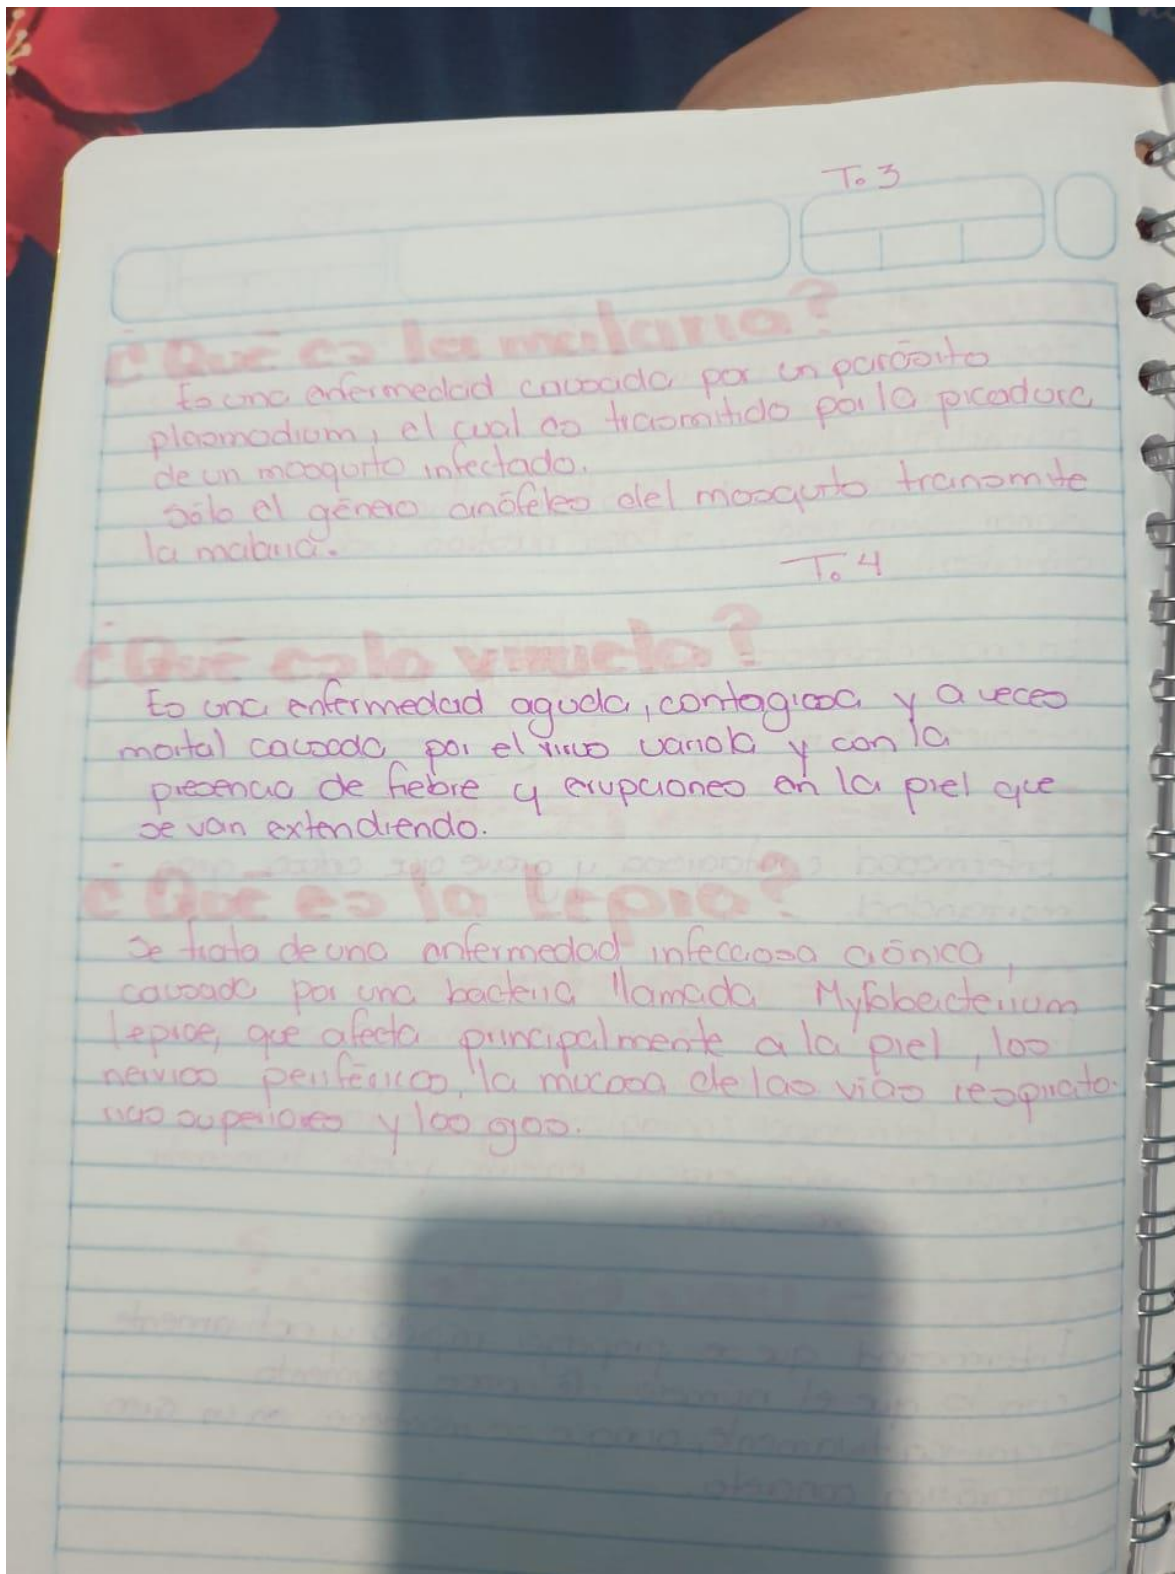 T. 3
¿Qué es la malaria?
Es una enfermedad causada por un parásito
plasmodium, el cual es trasmitido por la picadura
de un mosquito infectado.
sólo el género anófeles del mosquito transmite
la malaria.
T. 4
¿Qué es la viruela?
Es una enfermedad aguda, contagiosa y a veces
mortal causada por el virus variola y con la
presencia de fiebre y erupciones en la piel que
se van extendiendo.
¿Qué es la Lepra?
Se trata de una enfermedad infecciosa crónica,
causada por una bacteria llamada
leprae, que afecta principalmente a la piel, los
nervios periféricos, la mucosa de las vías respirato-
rias superiores y los ojos.